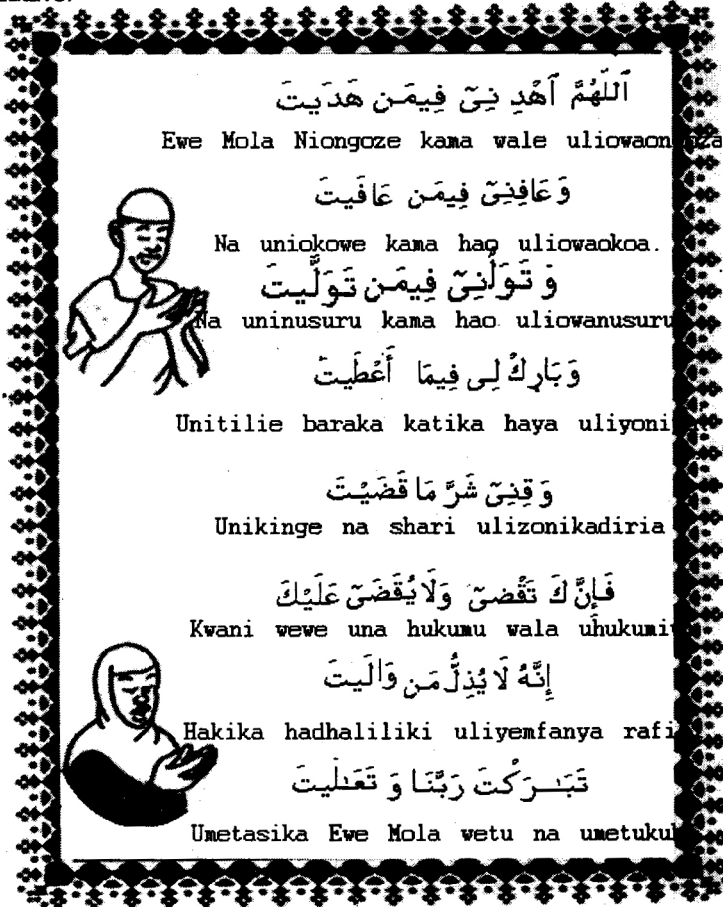 ٱللَّهُمَّ ٱهْدِ نِىٓ فِيمَـن هَدَيتَ
Ewe Mola Niongoze kama wale
وَعَافِنِىٓ فِيمَـن عَافَيتَ
Na uniokowe kama hao uliowaokoa.
وَ تَوَلَّنِىٓ فِيمَـن تَوَلَّيتَ
Na uninusuru kama hao uliowanusuru
وَبَارِكْ لِى فِيمَا أَعْطَيتَ
Unitilie baraka katika haya
وَقِنِىٓ شَرَّ مَا قَضَيْتَ
Unikinge na shari ulizonikadiria
فَإِنَّ كَ تَقْضِىٓ وَلَا يُقْضَىٓ عَلَيْكَ
Kwani wewe una hukumu wala
إِنَّهُ لَا يُذِلُّ مَن وَالَيتَ
Hakika hadhaliliki uliyemfanya
تَبَـٰـرَكْتَ رَبَّنَا وَ تَعَـٰلَيتَ
Umetasika Ewe Mola wetu na